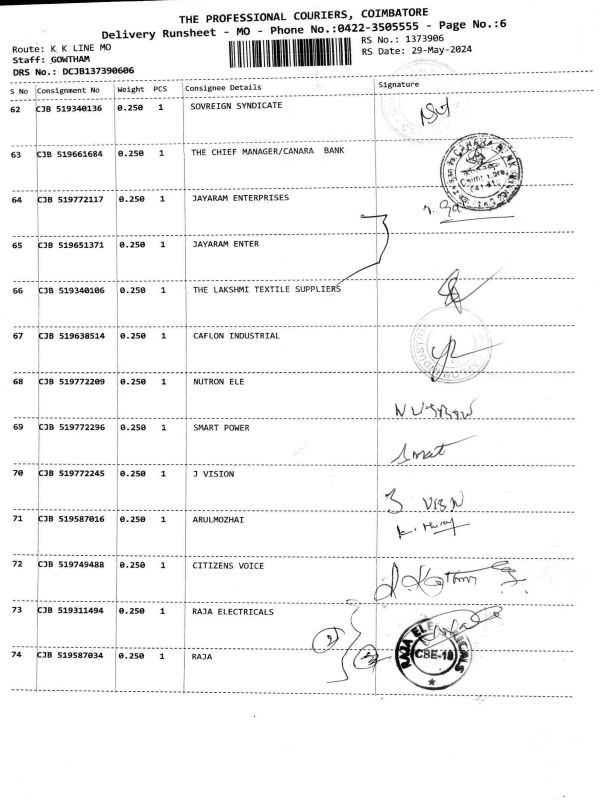 THE PROFESSIONAL COURIERS, COIMBATORE
Delivery Runsheet - MO - Phone No.:0422-3505555 - Page No.:6
Route: K K LINE MO
Staff: GOWTHAM
DRS No.: DCJB137390606
RS No.: 1373906
RS Date: 29-May-2024
S No Consignment No Weight PCS Consignee Details Signature
62 CJB 519340136 0.250 1 SOVREIGN SYNDICATE
63 CJB 519661684 0.250 1 THE CHIEF MANAGER/CANARA BANK
64 CJB 519772117 0.250 1 JAYARAM ENTERPRISES
65 CJB 519651371 0.250 1 JAYARAM ENTER
66 CJB 519340106 0.250 1 THE LAKSHMI TEXTILE SUPPLIERS
67 CJB 519638514 0.250 1 CAFLON INDUSTRIAL
68 CJB 519772209 0.250 1 NUTRON ELE
69 CJB 519772296 0.250 1 SMART POWER
Smart
70 CJB 519772245 0.250 1 J VISION
71 CJB 519587016 0.250 1 ARULMOZHAI
72 CJB 519749488 0.250 1 CITIZENS VOICE
73 CJB 519311494 0.250 1 RAJA ELECTRICALS
74 CJB 519587034 0.250 1 RAJA
RAJA ELECTRICALS
CBE-18